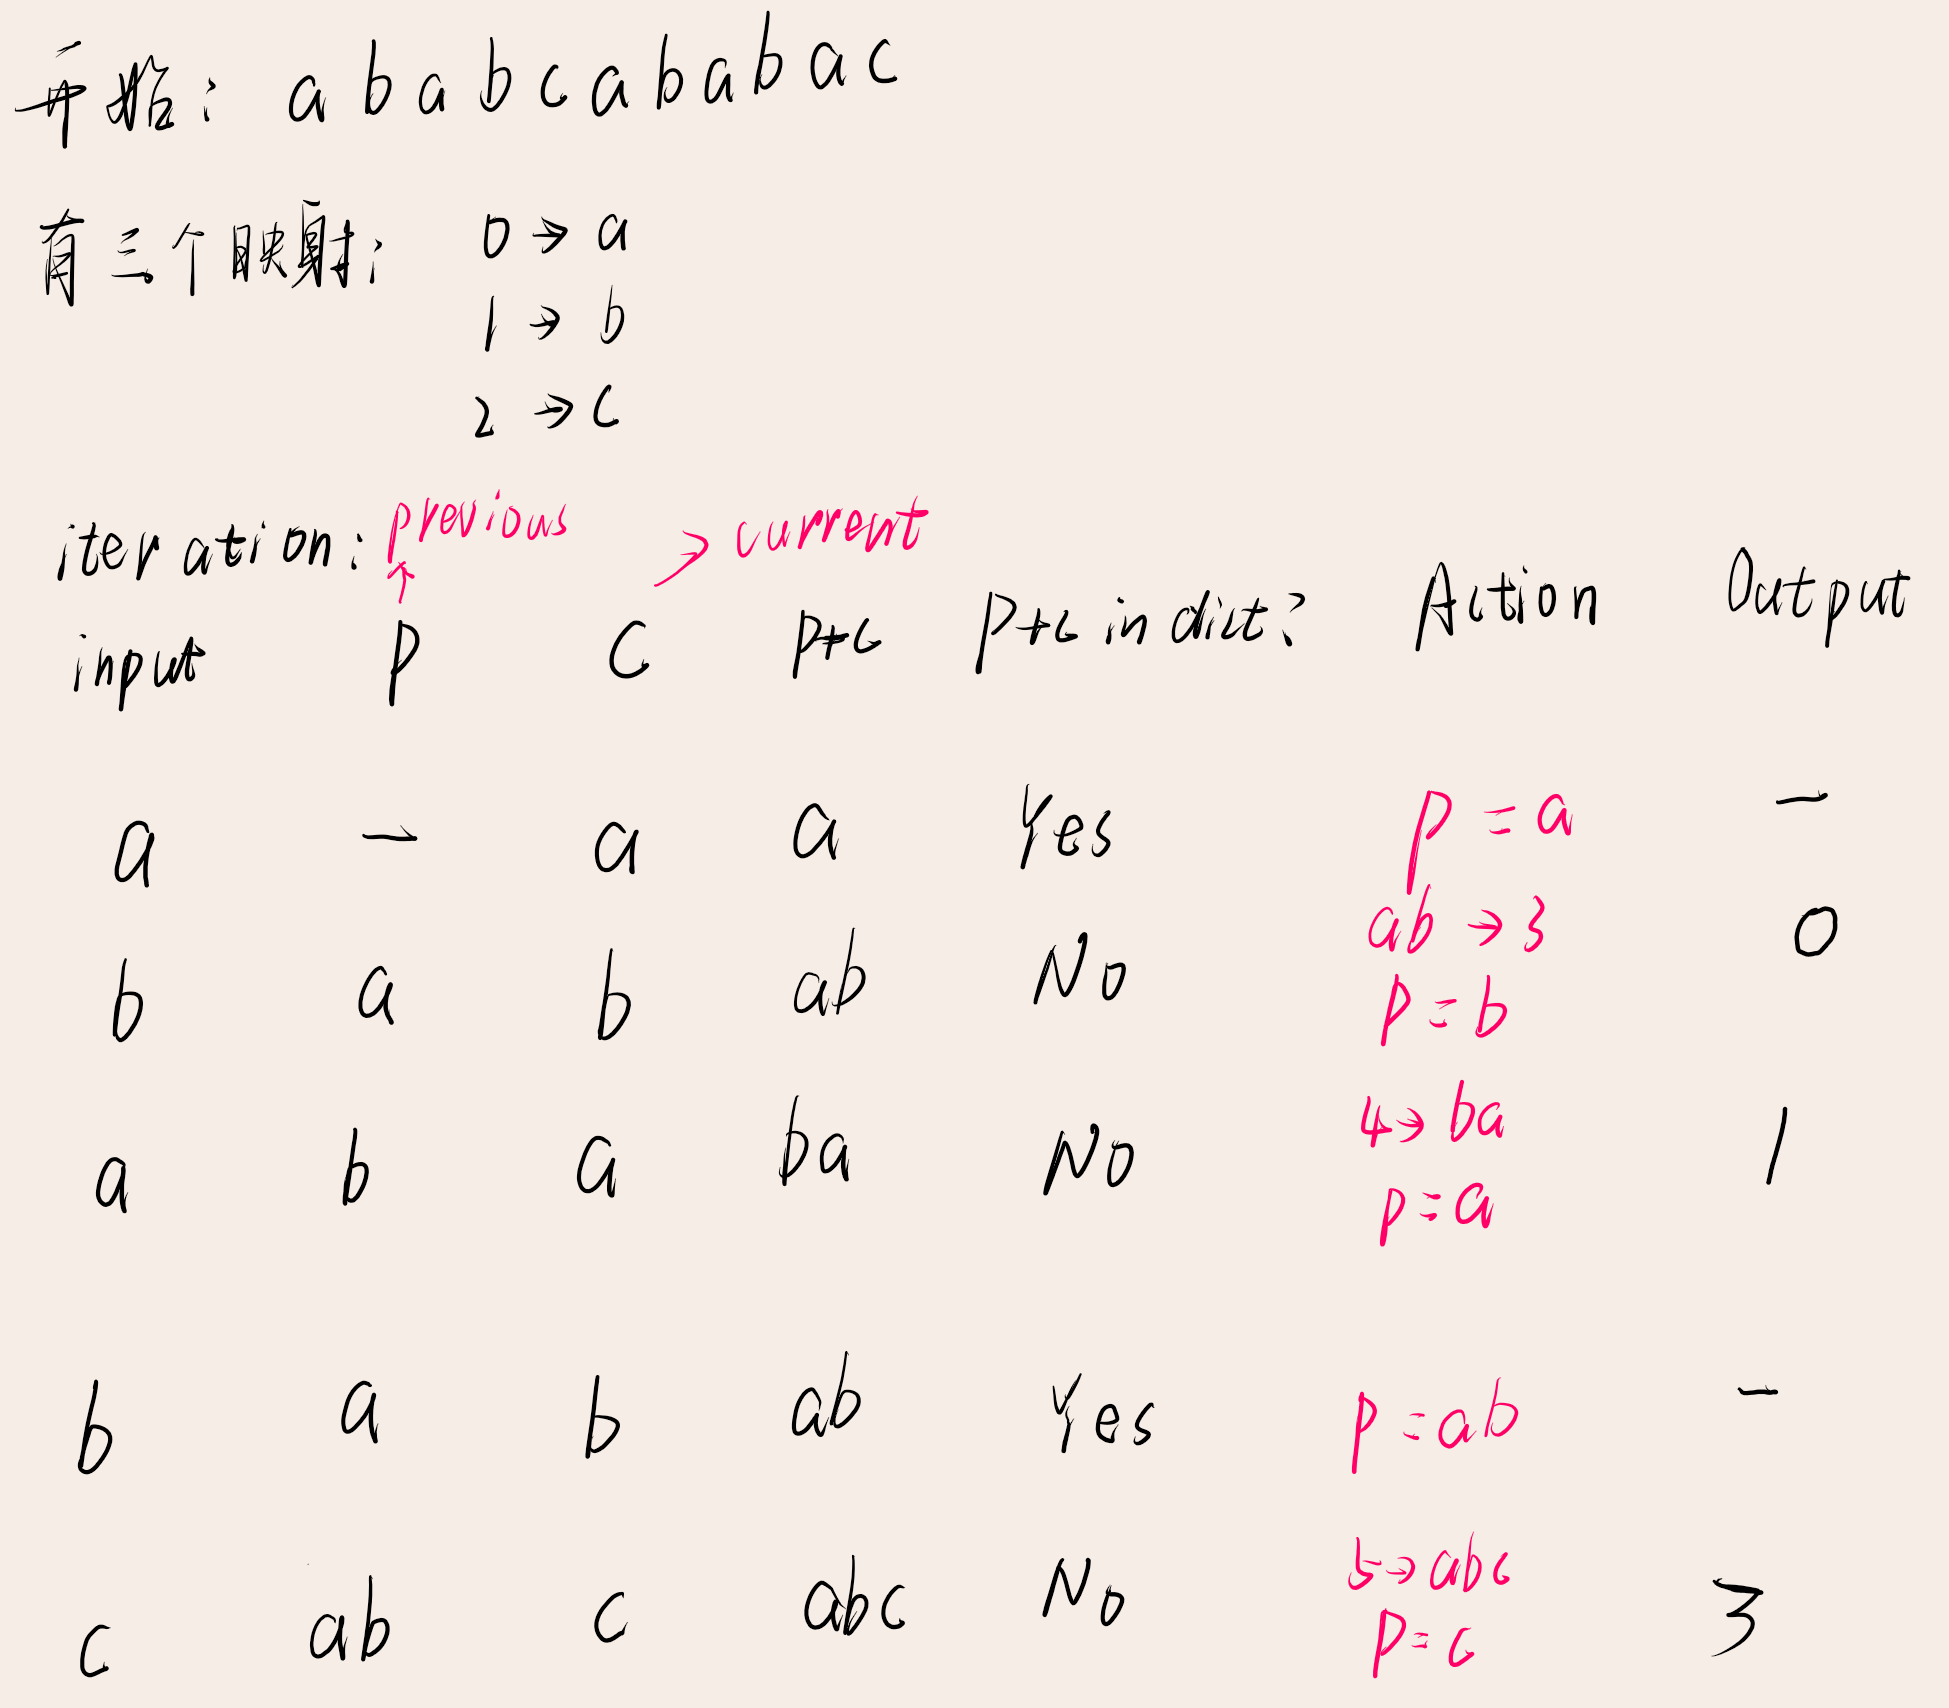 开始: a b a b c a b a b a c
有三个映射: 0 → a
1 → b
2 → c
iteration: previous → current
input P C P+C P+C in dict? Action Output
a — a a Yes P = a —
b a b ab No ab → 3 0
P = b
a b a ba No 4 → ba 1
P = a
b a b ab Yes P = ab —
c ab c abc No 5 → abc 3
P = c